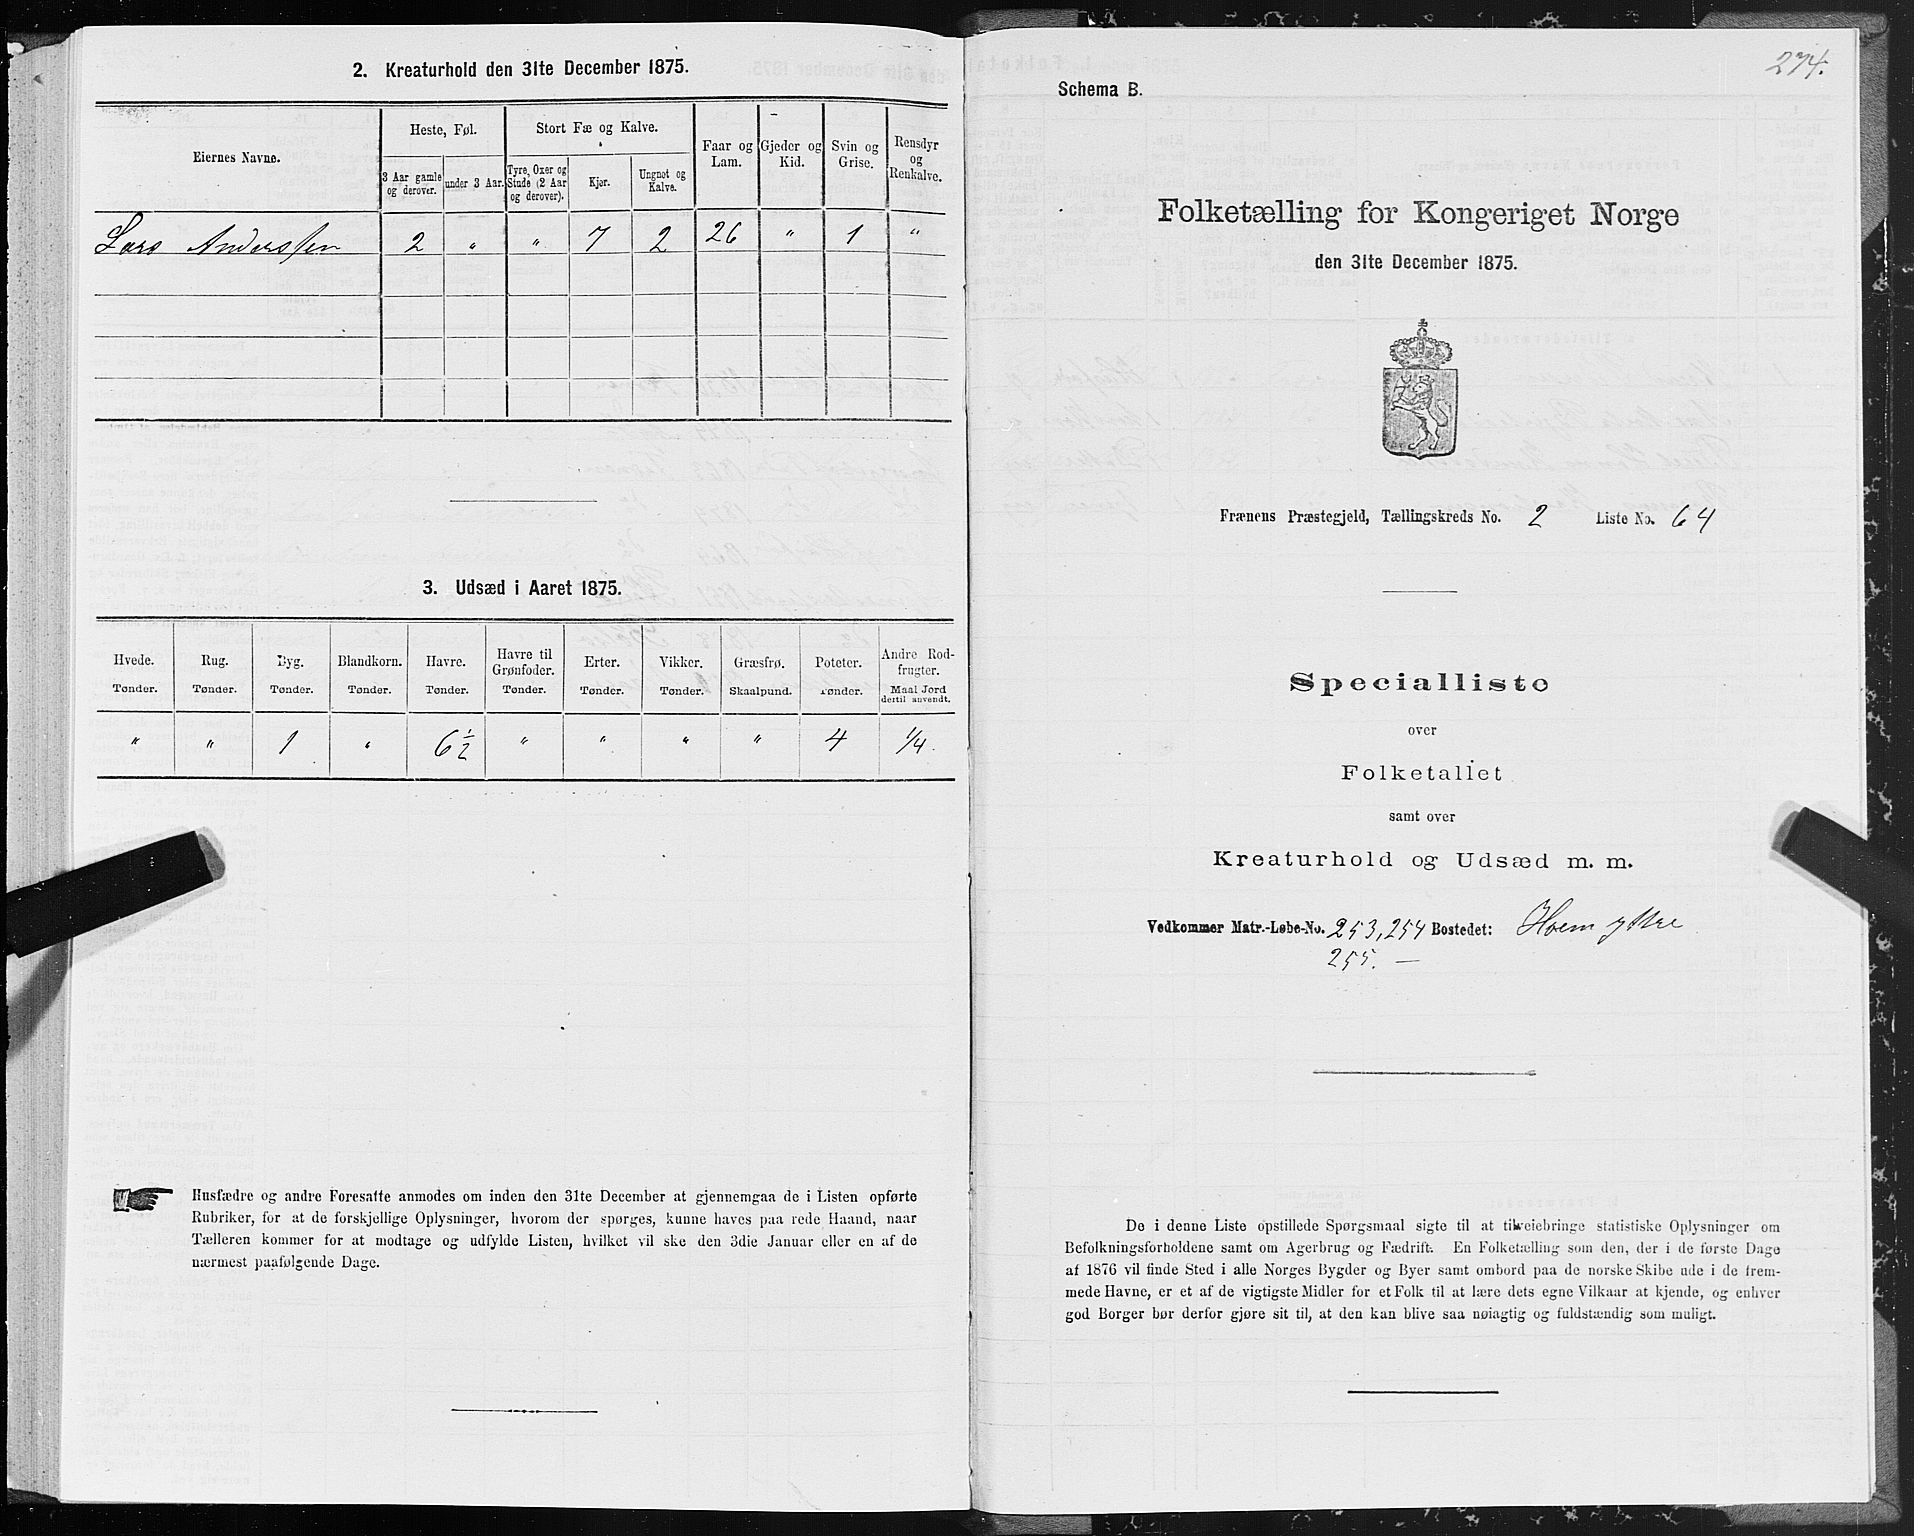 2. Kreaturhold den 31te December 1875.
Eiernes Navne.
Heste, Føl.
Stort Fæ og Kalve.
Faar og Lam.
Gjeder og Kid.
Svin og Grise.
Rensdyr og Renkalve.
3 Aar gamle og derover.
under 3 Aar.
Tyre, Oxer og Stude (2 Aar og derover).
Kjør.
Ungnøt og Kalve.
Lars Anderssen 2 " " 7 2 26 " 1 "
3. Udsæd i Aaret 1875.
Hvede. Rug. Byg. Blandkorn. Havre. Havre til Grønfoder. Erter. Vikker. Græsfrø. Poteter. Andre Rodfrugter.
Tønder. Tønder. Tønder. Tønder. Tønder. Tønder. Tønder. Tønder. Skaalpund. Tønder. Maal Jord dertil anvendt.
" " 1 " 6 1/2 " " " " 4 1/4.
Husfædre og andre Foresatte anmodes om inden den 31te December at gjennemgaa de i Listen opførte
Rubriker, for at de forskjellige Oplysninger, hvorom der spørges, kunne haves paa rede Haand, naar
Tælleren kommer for at modtage og udfylde Listen, hvilket vil ske den 3die Januar eller en af de
nærmest paafølgende Dage.
274.
Schema B.
Folketælling for Kongeriget Norge
den 31te December 1875.
Frænens Præstegjeld, Tællingskreds No. 2 Liste No. 64
Specialliste
over
Folketallet
samt over
Kreaturhold og Udsæd m. m.
Vedkommer Matr.-Løbe-No. 253, 254 Bostedet: Hoem yttre
255. —
De i denne Liste opstillede Spørgsmaal sigte til at tilveiebringe statistiske Oplysninger om
Befolkningsforholdene samt om Agerbrug og Fædrift. En Folketælling som den, der i de første Dage
af 1876 vil finde Sted i alle Norges Bygder og Byer samt ombord paa de norske Skibe ude i de frem-
mede Havne, er et af de vigtigste Midler for et Folk til at lære dets egne Vilkaar at kjende, og enhver
god Borger bør derfor gjøre sit til, at den kan blive saa nøiagtig og fuldstændig som muligt.